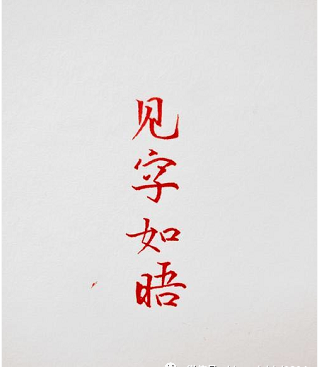 见字如晤